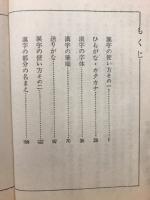 もくじ
漢字の使い方その一
ひらがな・カタカナ
漢字の字体
漢字の筆順 70
送りがな
漢字の使い方その二
漢字の部分の名まえ